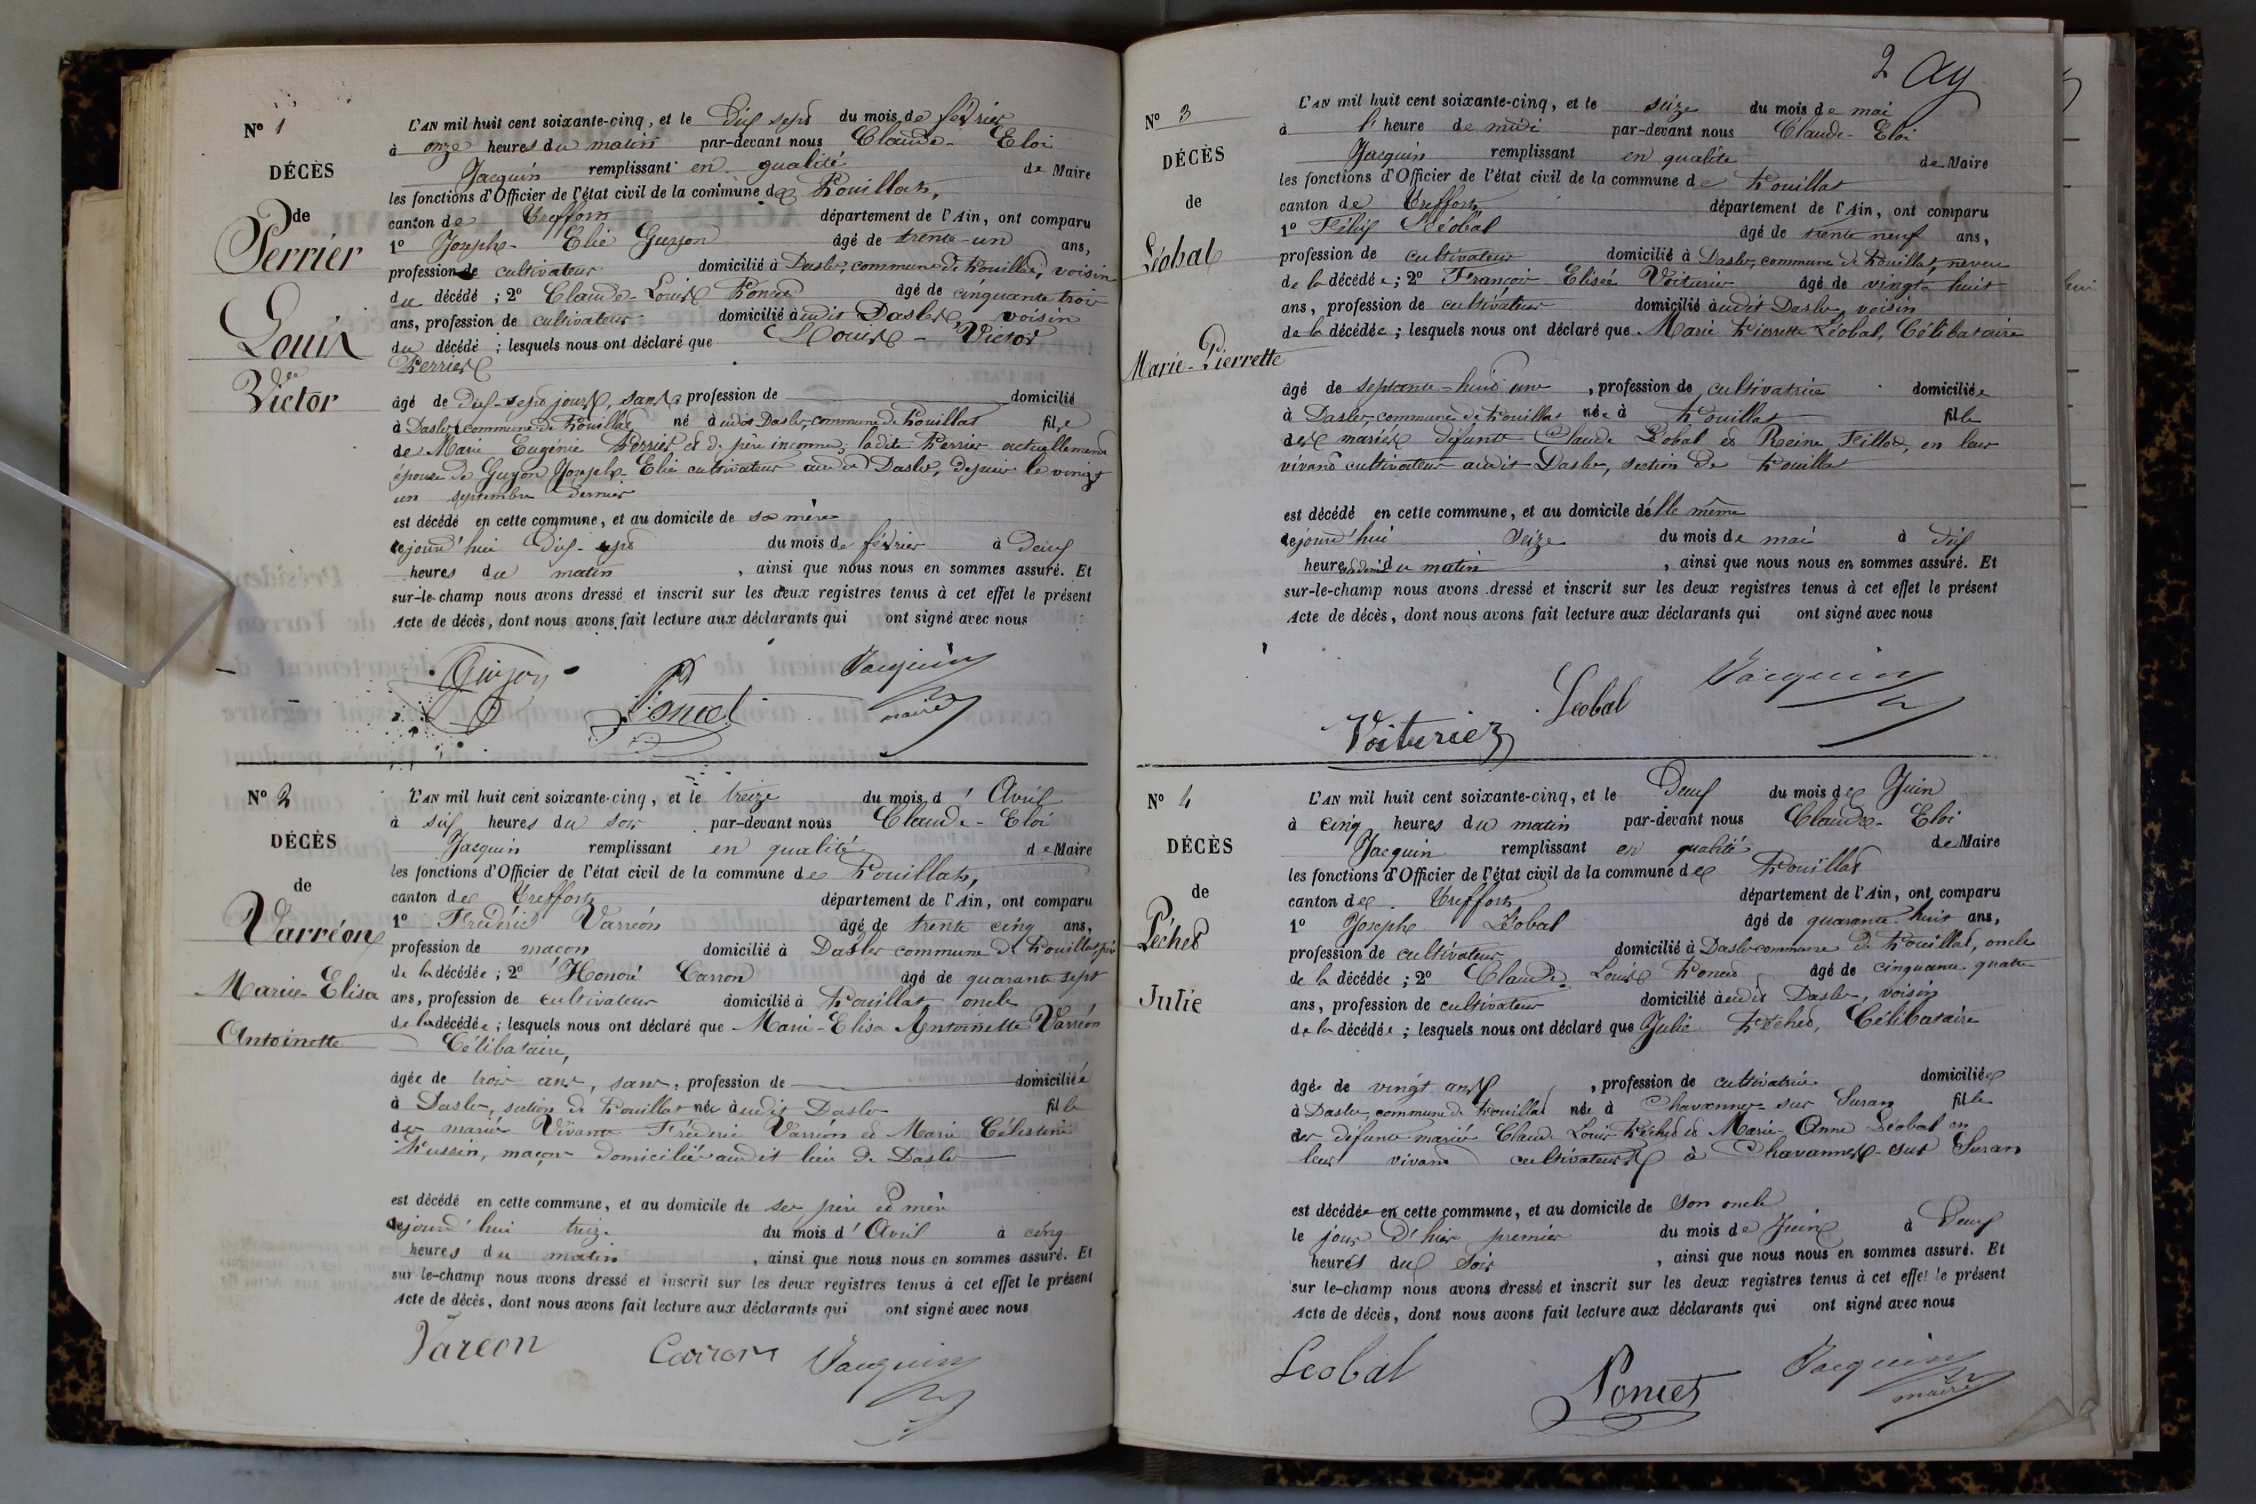 N° 1
DÉCÈS
de
Perrier
Louis
Victor
L'AN mil huit cent soixante-cinq, et le dix sept du mois de février
à onze heures du matin par-devant nous Claude-Eloi
Jacquin remplissant en qualité de Maire
les fonctions d'Officier de l'état civil de la commune de Pouillat,
canton de Treffort département de l'Ain, ont comparu
1° Joseph-Elie Guyon âgé de trente-un ans,
profession de cultivateur domicilié à Dasler, commune de Pouillat, voisin
du décédé ; 2° Claude-Louis Poncet âgé de cinquante trois
ans, profession de cultivateur domicilié audit Dasler, voisin
du décédé ; lesquels nous ont déclaré que Louis-Victor
Perrier
âgé de dix-sept jours, sans profession de domicilié
à Dasler, commune de Pouillat, né audit Dasler, commune de Pouillat fils
de Marie Eugénie Perrier et de père inconnu; ladite Perrier actuellement
épouse de Guyon Joseph-Elie cultivateur audit Dasler, depuis le vingt
un septembre dernier
est décédé en cette commune, et au domicile de sa mère
cejourd'hui dix-sept du mois de février à deux
heures du matin, ainsi que nous nous en sommes assuré. Et
sur-le-champ nous avons dressé et inscrit sur les deux registres tenus à cet effet le présent
Acte de décès, dont nous avons fait lecture aux déclarants qui ont signé avec nous
Guyon Poncet Jacquin
maire
N° 2
DÉCÈS
de
Varréon
Marie-Elisa
Antoinette
L'AN mil huit cent soixante-cinq, et le treize du mois d'Avril
à six heures du soir par-devant nous Claude-Eloi
Jacquin remplissant en qualité de Maire
les fonctions d'Officier de l'état civil de la commune de Pouillat,
canton de Treffort département de l'Ain, ont comparu
1° Fréderic Varréon âgé de trente cinq ans,
profession de maçon domicilié à Dasler commune de Pouillat, père
de la décédée ; 2° Honoré Carron âgé de quarante sept
ans, profession de cultivateur domicilié à Pouillat oncle
de la décédée ; lesquels nous ont déclaré que Marie-Elisa Antoinette Varréon
Célibataire,
âgée de trois ans, sans, profession de domiciliée
à Dasler, section de Pouillat née audit Dasler fille
des mariés Vivants Fréderic Varréon et Marie Célestine
maçon domiciliés audit lieu de Dasler
est décédé en cette commune, et au domicile de ses père et mère
cejourd'hui treize du mois d'Avril à cinq
heures du matin, ainsi que nous nous en sommes assuré. Et
sur le-champ nous avons dressé et inscrit sur les deux registres tenus à cet effet le présent
Acte de décès, dont nous avons fait lecture aux déclarants qui ont signé avec nous
Varéon Carron Jacquin
2
N° 3
DÉCÈS
de
Léobal
Marie-Pierrette
L'AN mil huit cent soixante-cinq, et le seize du mois de mai
à l'heure de midi par-devant nous Claude-Eloi
Jacquin remplissant en qualité de Maire
les fonctions d'Officier de l'état civil de la commune de Pouillat
canton de Treffort département de l'Ain, ont comparu
1° Félix Léobal âgé de trente neuf ans,
profession de cultivateur domicilié à Dasler, commune de Pouillat, neveu
de la décédée ; 2° François Elisée Voiturier âgé de vingt-huit
ans, profession de cultivateur domicilié audit Dasler, voisin
de la décédée ; lesquels nous ont déclaré que Marie Pierrette Léobal, Célibataire
âgé de septante-huit ans, profession de cultivatrice domiciliée
à Dasler, commune de Pouillat née à Pouillat fille
des mariés défunts Claude Léobal et Reine Fillod, en leur
vivant cultivateurs audit Dasler, section de Pouillat
est décédé en cette commune, et au domicile d'elle même
cejourd'hui seize du mois de mai à dix
heure du matin, ainsi que nous nous en sommes assuré. Et
sur-le-champ nous avons dressé et inscrit sur les deux registres tenus à cet effet le présent
Acte de décès, dont nous avons fait lecture aux déclarants qui ont signé avec nous
Voiturier Leobal Jacquin
N° 4
DÉCÈS
de
Péchet
Julie
L'AN mil huit cent soixante-cinq, et le Deux du mois de Juin
à cinq heures du matin par-devant nous Claude-Eloi
Jacquin remplissant en qualité de Maire
les fonctions d'Officier de l'état civil de la commune de Pouillat
canton de Treffort département de l'Ain, ont comparu
1° Joseph Léobal âgé de quarante huit ans,
profession de cultivateur domicilié à Dasler commune de Pouillat, oncle
de la décédée ; 2° Claude-Louis Poncet âgé de cinquante-quatre
ans, profession de cultivateur domicilié audit Dasler, voisin
de la décédée ; lesquels nous ont déclaré que Julie Péchet, Célibataire
âgée de vingt ans, profession de cultivatrice domiciliée
à Dasler, commune de Pouillat née à Chavannes-sur Suran fille
des défunts mariés Claude Louis Péchet et Marie-Anne Léobal en
leur vivant cultivateurs à Chavannes-sur Suran
est décédée en cette commune, et au domicile de son oncle
le jour d'hier premier du mois de Juin à Deux
heures du soir, ainsi que nous nous en sommes assuré. Et
sur le-champ nous avons dressé et inscrit sur les deux registres tenus à cet effet le présent
Acte de décès, dont nous avons fait lecture aux déclarants qui ont signé avec nous
Leobal Poncet Jacquin
maire